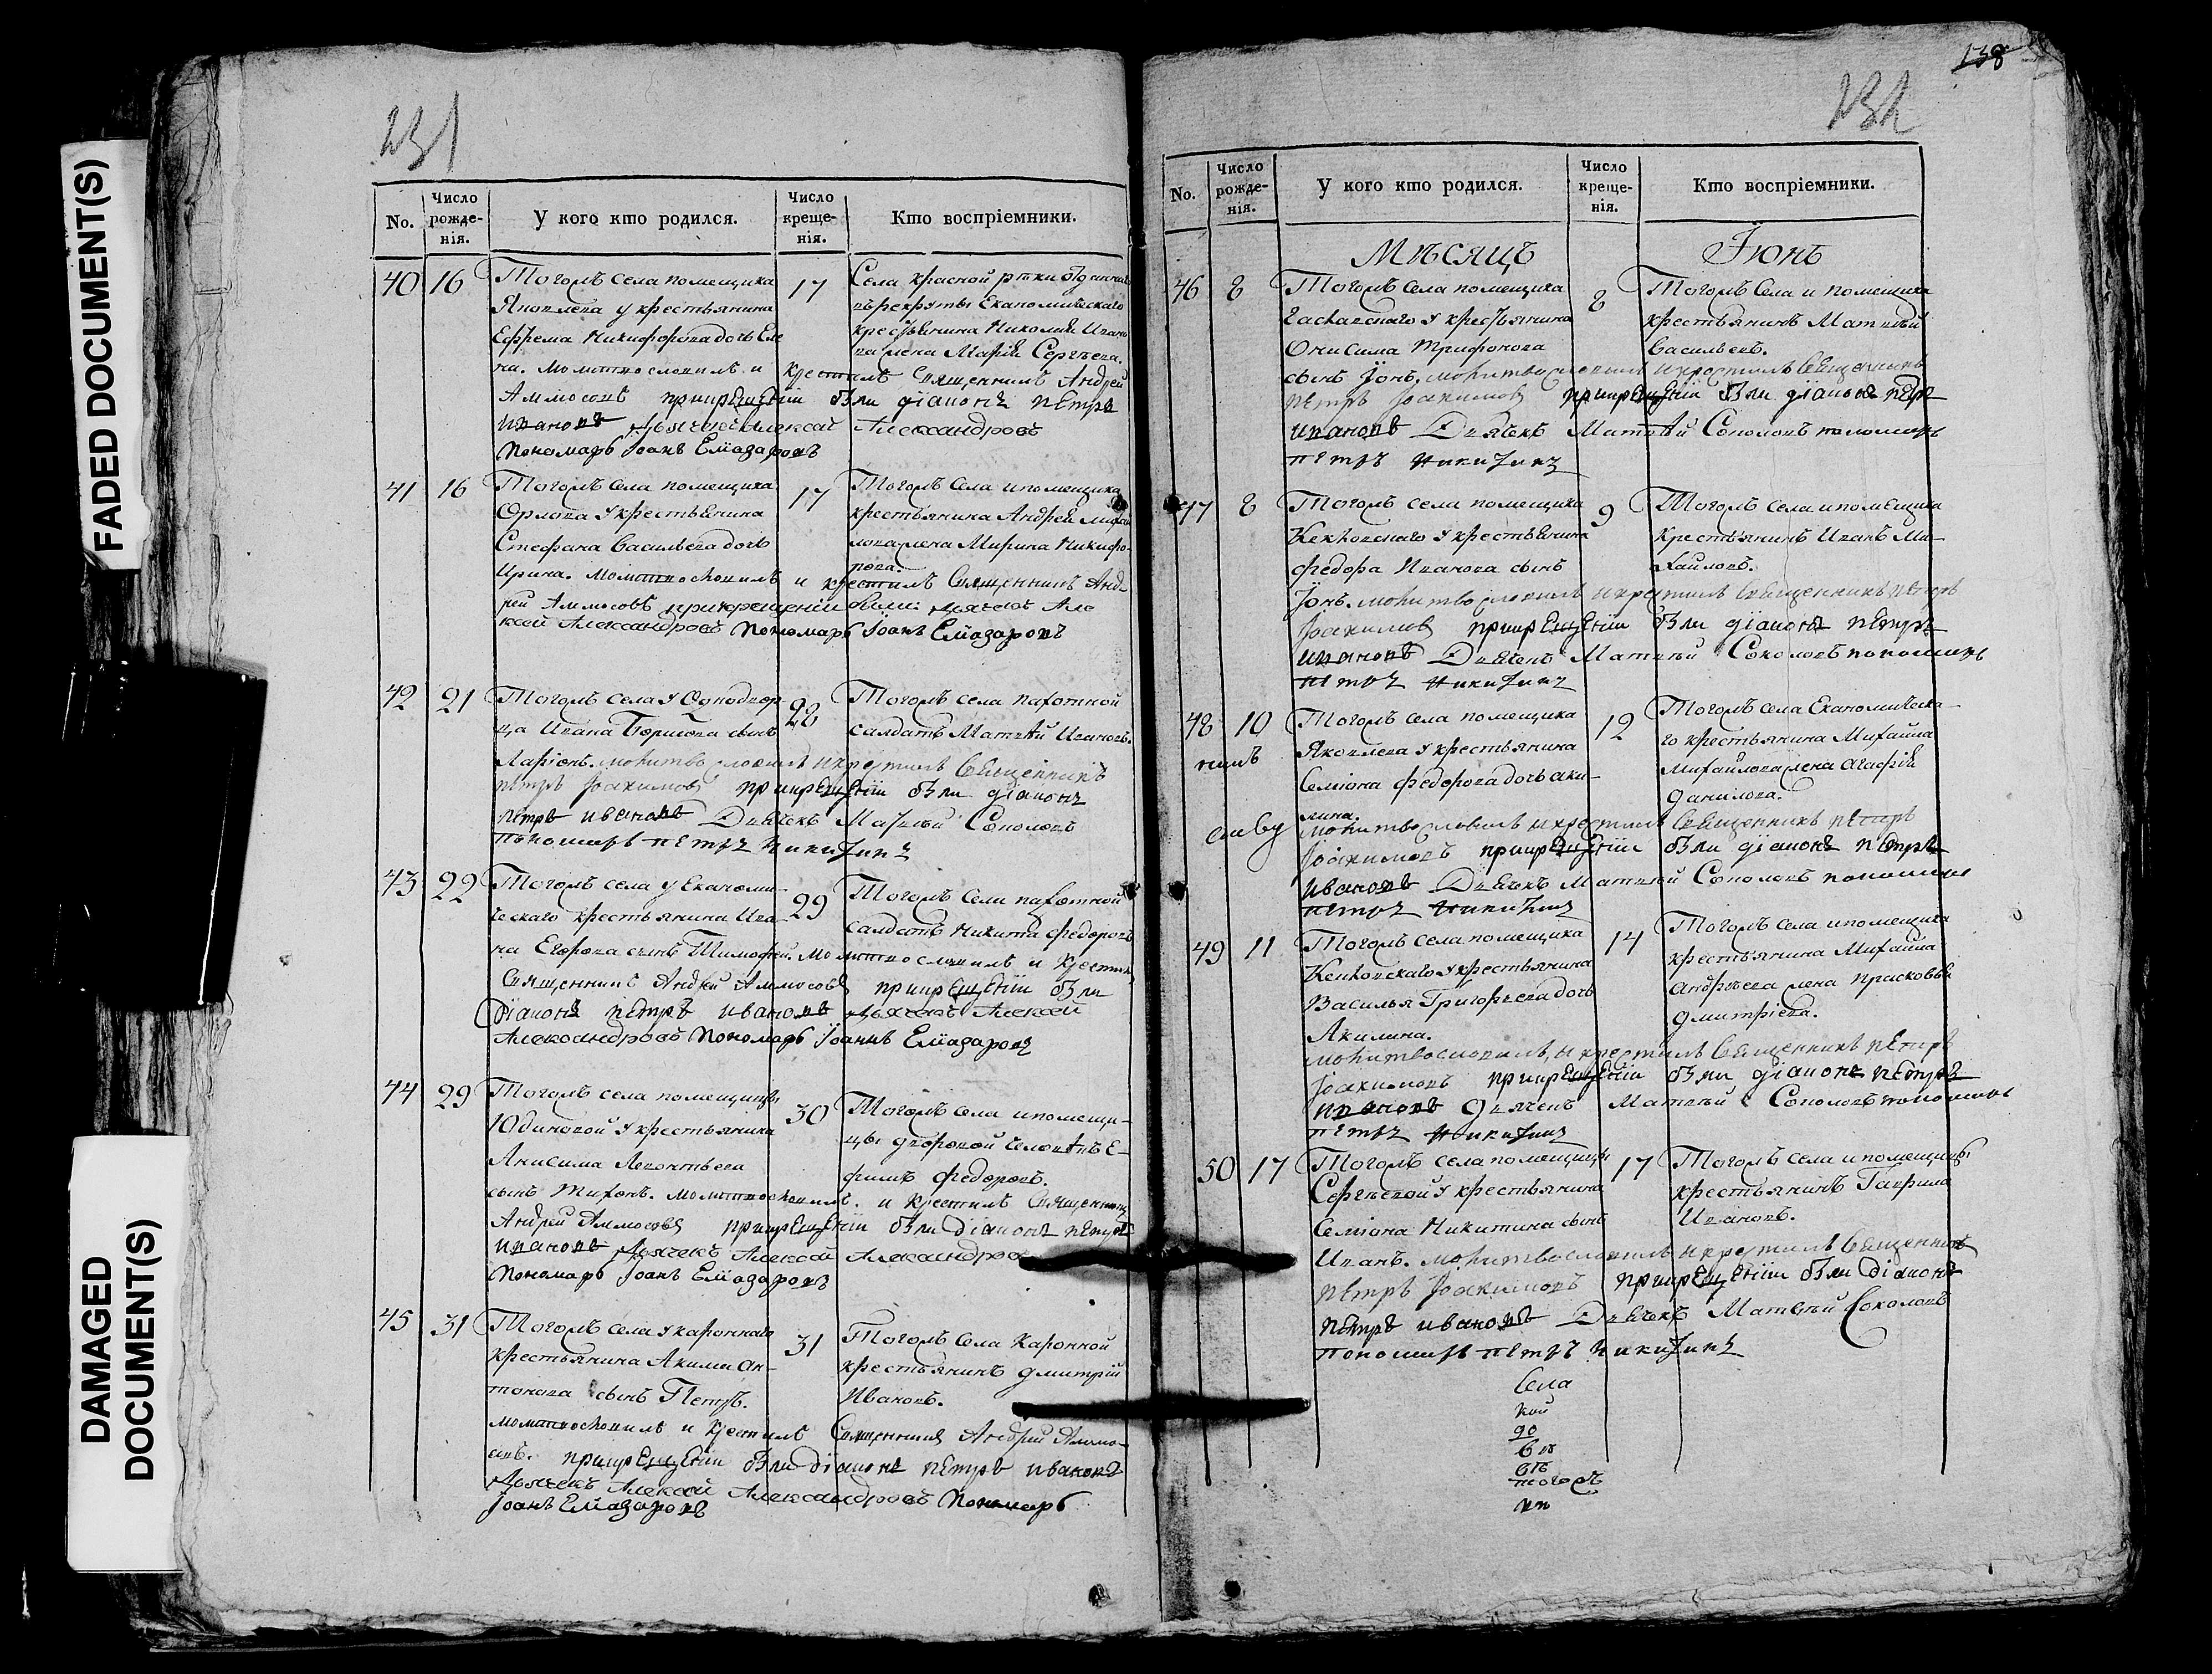 FADED DOCUMENT(S)
DAMAGED
DOCUMENT(S)
231
No.
Число рожде-нія.
У кого кто родился.
Число креще-нія.
Кто воспріемники.
40 16
Тогожъ села помещика
Яковлева у крестьянина
Ефрема Никифорова дочь Еле
на. молитвословилъ и крестилъ Священникъ Андрей
Аммосовъ прикрещеніи были діаконъ петръ
ивановъ дьячекъ Алексей Александровъ
Пономарь Іоанъ Еліазаровъ
17
Села красной речки отданнаго
въ рекруты Економическаго
крестьянина Николая Ивано
ва жена Марія Сергеева.
41 16
Тогожъ села помещика
Орлова у крестьянина
Стефана Васильева дочь
Ирина. молитвословилъ и крестилъ Священникъ Анд-
рей Аммосовъ прикрещеніи были: дьячекъ Але
ксей Александровъ Пономарь Іоанъ Еліазаровъ
17
Тогожъ села и помещика
крестьянина Андрея Михаи
лова жена Марина Никифо-
рова.
42 21
Тогожъ села у Однодвор
ца Ивана Борисова сынъ
Ларіонъ. молитвословилъ и крестилъ Священникъ
петръ Іоакимовъ прикрещеніи были діаконъ
петръ ивановъ Дьячекъ Матвей Соколовъ
пономарь петръ Никитинъ
28
Тогожъ села пахотной
салдатъ Матвей Ивановъ.
43 22
Тогожъ села у Економи-
ческаго крестьянина Ива-
на Егорова сынъ Тимофей. молитвословилъ и крестилъ
Священникъ Андрей Аммосовъ прикрещеніи были
Діаконъ петръ ивановъ дьячекъ Алексей
Александровъ Пономарь Іоаннъ Еліазаровъ
29
Тогожъ села пахотной
салдатъ Никита Федоровъ
44 29
Тогожъ села помещицы
Юдиновой у крестьянина
Анисима Леонтьева
сынъ Тихонъ. молитвословилъ и крестилъ Священникъ
Андрей Аммосовъ прикрещеніи были діаконъ петръ
ивановъ дьячекъ Алексей Александровъ
Пономарь Іоанъ Еліазаровъ
30
Тогожъ села и помещи-
цы дворовой человекъ Е-
фимъ Федоровъ.
45 31
Тогожъ села у каронного
крестьянина Акима Ан-
тонова сынъ Петръ.
молитвословилъ и крестилъ Священникъ Андрей Аммо-
совъ. прикрещеніи были діаконъ петръ ивановъ
Дьячекъ Алексей Александровъ Пономарь
Іоанъ Еліазаровъ
31
Тогожъ села каронной
крестьянинъ Дмитрій
Ивановъ.
138
232
No.
Число рожде-нія.
У кого кто родился.
Число креще-нія.
Кто воспріемники.
Мѣсяцъ Іюнь
46 8
Тогожъ села помещика
у крестьянина
Онисима Трифонова
сынъ Іонъ. молитвословилъ и крестилъ Священникъ
петръ Іоакимовъ прикрещеніи были діаконъ петръ
ивановъ Дьячекъ Матвей Соколовъ пономарь
петръ Никитинъ
8
Тогожъ села и помещика
крестьянинъ Матвей
Васильевъ.
47 8
Тогожъ села помещика
у крестьянина
Федора Иванова сынъ
Іонъ. молитвословилъ и крестилъ Священникъ петръ
Іоакимовъ прикрещеніи были діаконъ петръ
ивановъ Дьячекъ Матвей Соколовъ пономарь
петръ Никитинъ
9
Тогожъ села и помещика
крестьянинъ Иванъ Ми-
хайловъ.
48 10
Тогожъ села помещика
Яковлева у крестьянина
Семіона Федорова дочь аки-
лина.
молитвословилъ и крестилъ Священникъ петръ
Іоакимовъ прикрещеніи были діаконъ петръ
ивановъ Дьячекъ Матвей Соколовъ пономарь
петръ Никитинъ
12
Тогожъ села Економическа-
го крестьянина Михайла
Михайлова жена агафія
данилова.
49 11
Тогожъ села помещика
у крестьянина
Василья Григорьева дочь
Акилина.
молитвословилъ, и крестилъ Священникъ петръ
Іоакимовъ прикрещеніи были діаконъ петръ
ивановъ Дьячекъ Матвей Соколовъ пономарь
петръ Никитинъ
14
Тогожъ села и помещика
крестьянина Михайла
андреева жена прасковья
дмитріева.
50 17
Тогожъ села помещицы
Сергеевой у крестьянина
Семіона Никитина сынъ
Иванъ. молитвословилъ и крестилъ Священникъ
петръ Іоакимовъ прикрещеніи были діаконъ
петръ ивановъ Дьячекъ Матвей Соколовъ
пономарь петръ Никитинъ
17
Тогожъ села и помещицы
крестьянинъ Гаврила
Ивановъ.
Села